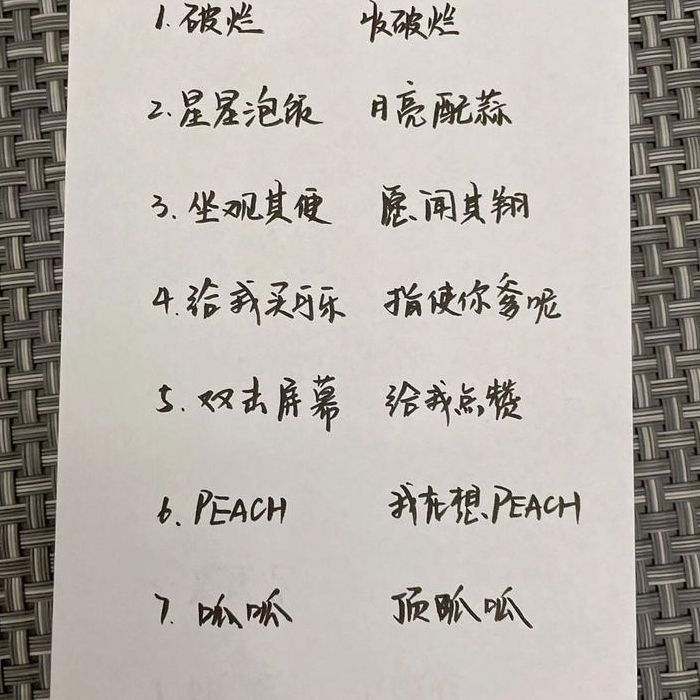 1. 破烂 收破烂
2. 星星泡饭 月亮配蒜
3. 坐观其便 愿闻其翔
4. 给我买可乐 指使你爹呢
5. 双击屏幕 给我点赞
6. PEACH 我在想PEACH
7. 呱呱 顶呱呱